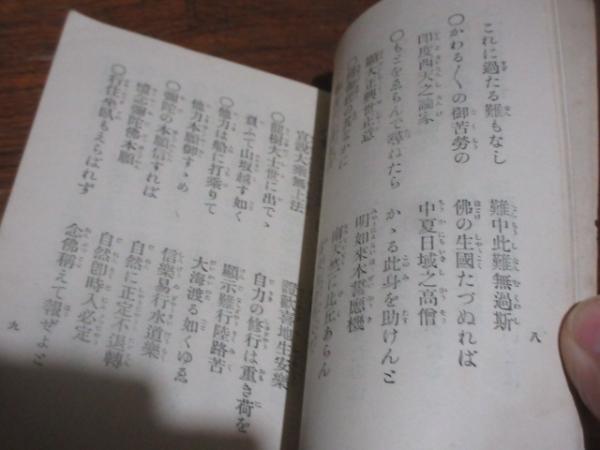 これに過たる難もなし
難中此難無過斯
〇かわる〴〵の御苦勞の
佛の生國たづぬれば
印度西天之論家
中夏日域之高僧
〇もとをゑらんで尋ねたら
かゝる此身を助けんと
顯大聖興世正意
明如來本誓應機
八
宣説大乘無上法
證歡喜地生安樂
〇龍樹大士世に出でゝ
自力の修行は重き荷を
負ふて山坂越す如く
顯示難行陸路苦
〇他力は船に打乘りて
大海渡る如くゆゑ
他力本願御すゝめ
信樂易行水道樂
〇彌陀の本願信ずれば
自然に正定不退轉
憶念彌陀佛本願
自然即時入必定
〇行住坐臥もゑらばれず
念佛稱えて報ぜよと
九